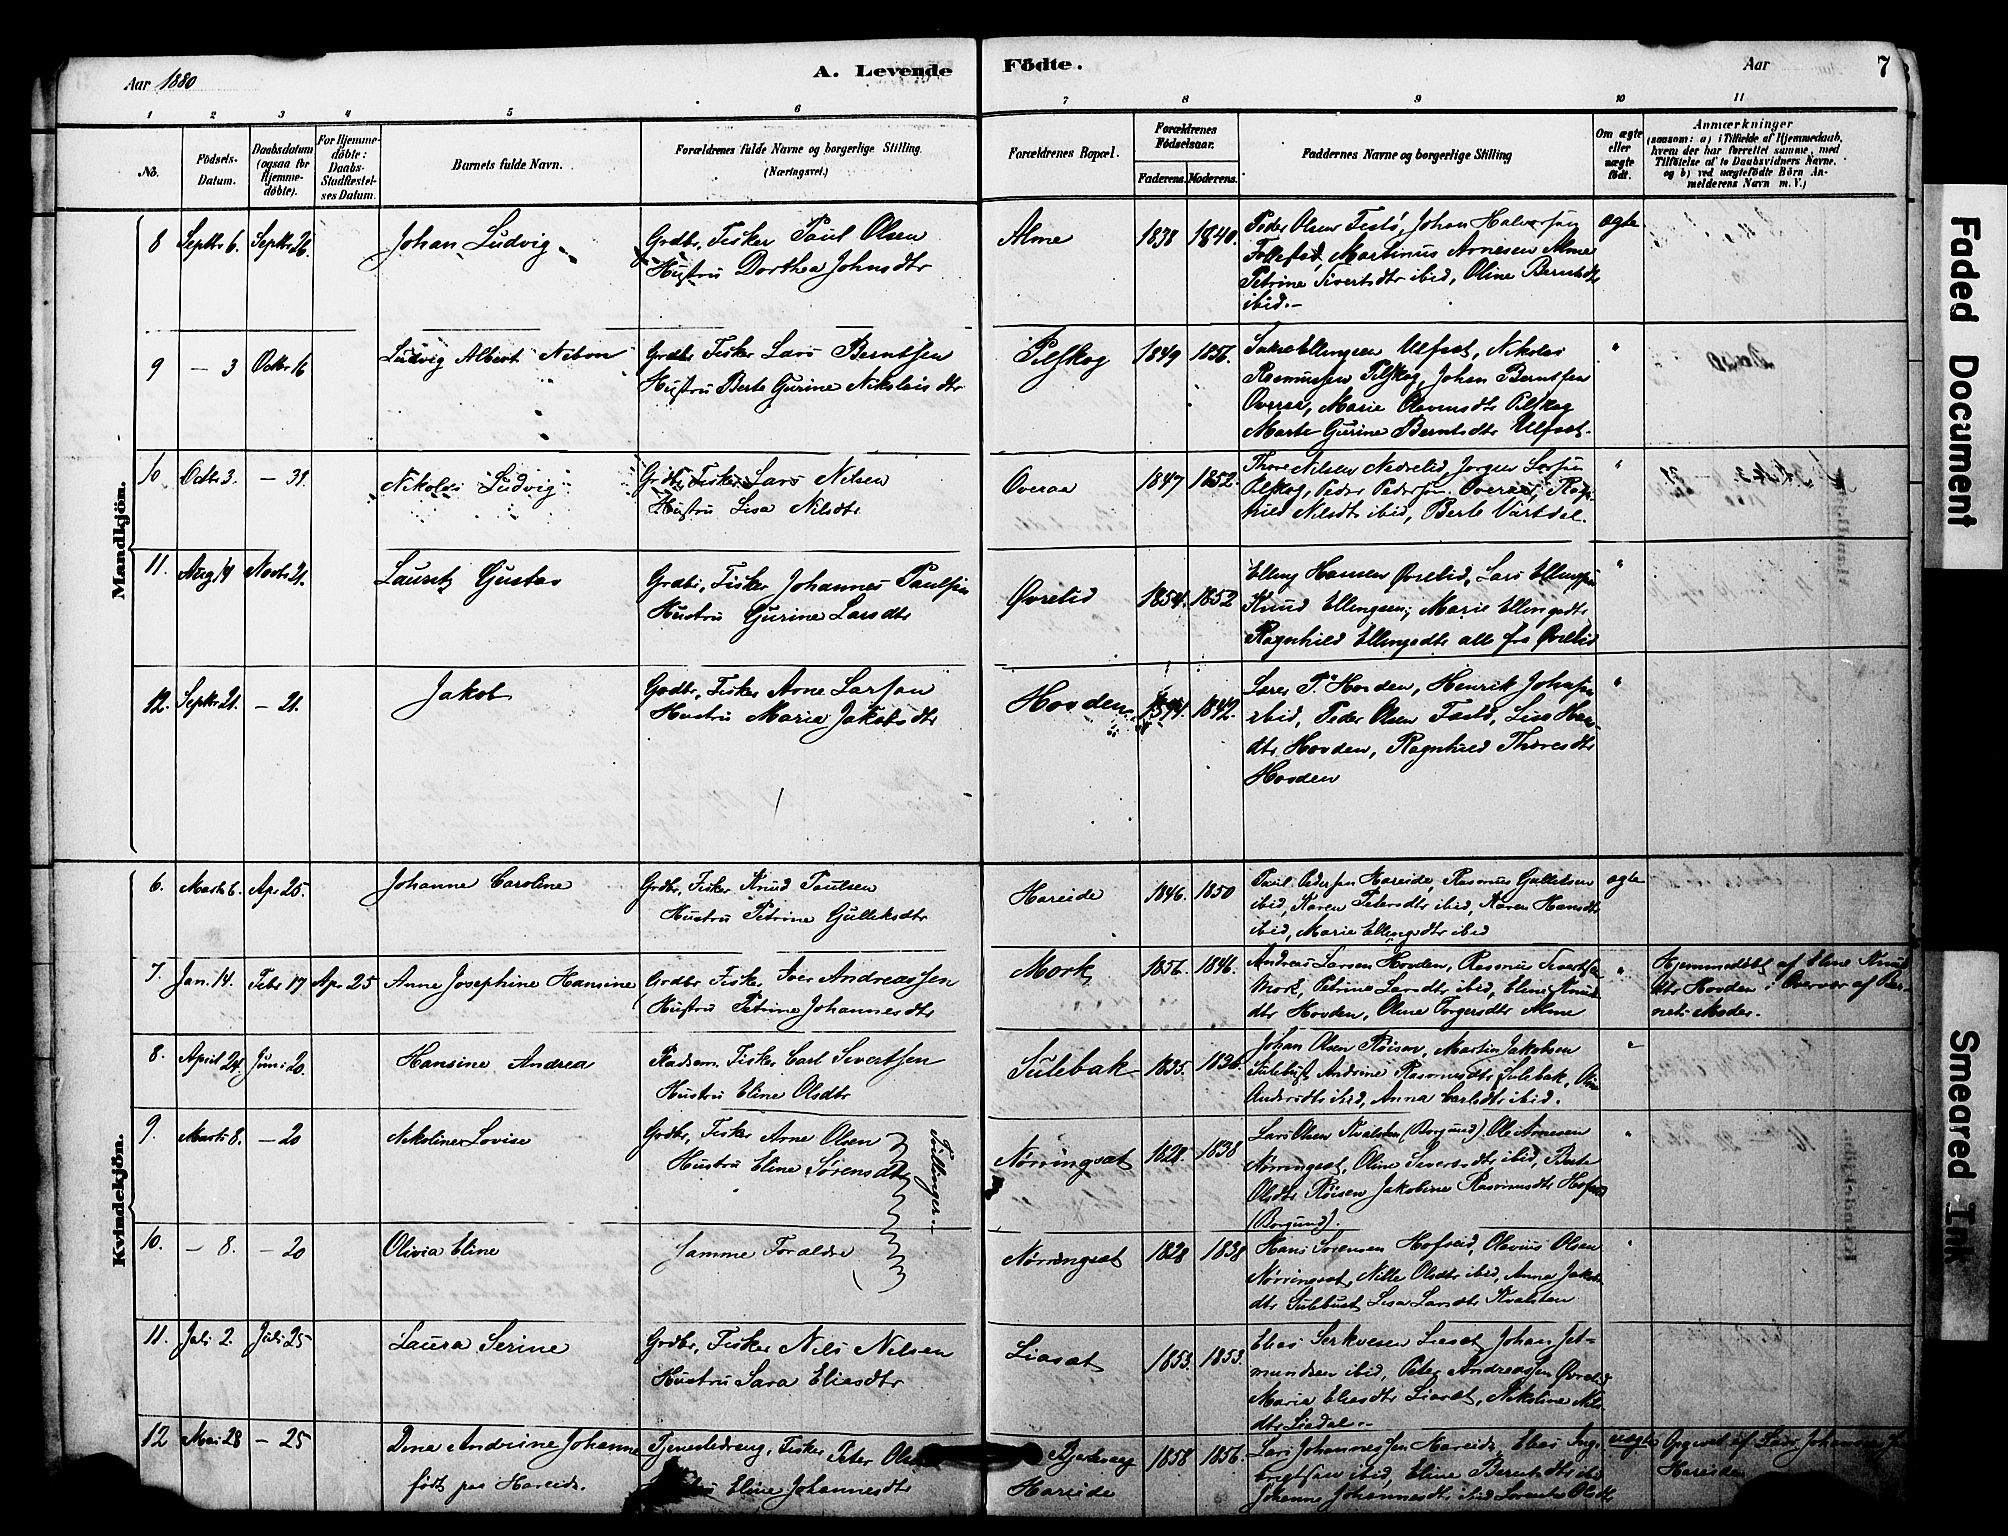 Aar 1880
A. Levende
Födte.
Aar
7
1 2 3 4 5 6 7 8 9 10 11
No.
Födsels-
Datum.
Daabsdatum
(ogsaa for
Hjemme-
döbte).
For Hjemme-
döbte:
Daabs-
Stadfæstel-
ses Datum.
Barnets fulde Navn.
Forældrenes fulde Navne og borgerlige Stilling.
(Næringsvei.)
Forældrenes Bopæl.
Forældrenes
Födselsaar.
Faderens. Moderens.
Faddernes Navne og borgerlige Stilling
Om ægte
eller
uægte
födt.
Anmærkninger
(saasom: a) i Tilfælde af Hjemmedaab,
hvem der har forrettet samme, med
Tilföielse af to Daabsvidners Navne.
og b) ved uægtefödte Börn An-
melderens Navn m. V.)
Mandkjön.
8 Septbr 6. Septbr 26. Johan Ludvig Grdbr, Fisker Paul Olsen
Hustru Dorthea Johnsdtr
Alme 1838 1840.
Peder Olsen Festø, Johan Halvorsen
Follestad, Martinus Arnesen Alme
Petrine Sivertsdtr ibid, Oline Berntsdtr
ibid.-
ægte
9 - 3 Octbr 16 Ludvig Albert Nibon Grdbr Fisker Lars Berntsen
Hustru Berte Gurine Nikolaisdtr
Pilskog 1849 1856.
Ellingsen Ulfset, Nikolai
Rasmussen Pilskog, Johan Berntsen
Overaa, Marie Pilskog
Marte Gurine Berntsdtr Ulfset.
"
10 Octbr 3. - 31. Nikolai Ludvig Grdbr, Fisker Lars Nilsen
Hustru Lisa Nilsdtr
Overaa 1847 1852.
Thore Nilsen Nedrelid, Jørgen Larsen
Pilskog, Peder Pedersen Overaa, Ragn-
hild Nilsdtr ibid, Berte Vartdal.
"
11. Aug 14 Novbr 21. Lauritz Gustav Grdbr, Fisker Johannes Paulsen
Hustru Gurine Larsdtr
Øvrelid 1854. 1852
Elling Hansen Øvrelid, Lars Ellingsen
Knud Ellingsen, Marie Ellingsdtr
Ragnhild Ellingsdtr alle fra Øvrelid
"
12. Septbr 21. - 21. Jakob Grdbr, Fisker Arne Larsen
Hustru Maria Jakobsdtr
Hovden 1842.
Lars P. Hovden, Henrik Johnsen
ibid, Peder Olsen Festø, Lisa Han-
dtr Hovden, Ragnhild Thoresdtr
Hovden
"
Kvindekjön.
6. Marts 6. Apr 25. Johanne Caroline Grdbr, Fisker Knud Paulsen
Hustru Petrine Gulleksdtr
Hareide 1846. 1850
Paul Pedersen Hareide, Rasmus Gulleksen
ibid, Karen Petersdtr ibid, Karen Hansdtr
ibid, Marie Ellingsdtr ibid
ægte
7. Jan. 14. Febr 17 Apr 25 Anne Josephine Hansine Grdbr Fisker Iver Andreassen
Hustru Petrine Johannesdtr
Mork 1856. 1846.
Andreas Larsen Hovden, Rasmus Sivertsen
Mork, Petrine Larsdtr ibid, Eline Knud-
dtr Hovden, Oline Torgersdtr Alme
"
Hjemmedøbt af Eline Knud-
dtr Hovden i Overvær af Bar-
nets Moder.
8. April 24. Juni 20. Hansine Andrea Pladsm. Fisker Carl Sivertsen
Hustru Eline Olsdtr
Sulebak 1835. 1836
Johan Olsen Røisen, Martin Jakobsen
Sulebust Andrine Rasmusdtr Sulebak,
Andersdtr ibid, Anna Carlsdtr ibid.
"
9. Marts 8. - 20 Nikoline Lovise Grdbr, Fisker Arne Olsen
Hustru Eline Sørensdtr
Tvillinger.
Nørringsæt 1828. 1838
Lars Olsen Kvalsten (Borgund) Ole Arnesen
Nørringsæt, Oline Siversdtr ibid, Berte
Olsdtr Røisen Jakobine Rasmusdtr
(Borgund).
"
10. - 8. - 20 Olivia Eline Samme Forældre
Nørringsæt 1828 1838
Hans Sørensen Hofseid, Olavius Olsen
Nørringsæt, Nille Olsdtr ibid, Anna Jakobs-
dtr Sulebust Lisa Larsdtr Kvalsten
"
11. Juli 2. Juli 25 Laura Serine Grdbr, Fisker Nils Nilsen
Hustru Sara Eliasdtr
Liasæt 1853. 1853.
Elias Liasæt Johan Jet-
mundsen ibid, Peter Andreassen Øvrelid
Maria Eliasdtr Liasæt, Nikoline Nils-
dtr Liadal.-
12 Mai 28 - 25 Dina Andrine Johanne
født paa Hareide.
Tjenestedreng, Fisker Peter Olsen
Hustru Eline Johannesdtr
Hareide 1858 1856.
Lars Johannessen Hareide, Elias Inge-
brigtsen ibid, Eline Berntsdtr ibid
Johanne Johannesdtr ibid Olsdtr
uægte
Opgivet af Lars Johannessen
Hareide
Faded Document
Smeared Ink